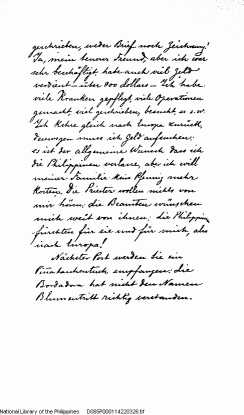 geschrieben, weder Brief noch Zeichnung!
Ja, mein teurer Freund, aber ich war
sehr beschäftigt habe auch viel Geld
verdient – über 900 dollars – Ich habe
viele Kranken gepflegt, viele Operationen
gemacht, viel geschrieben, besucht u. s. w.
Ich kehre gleich nach Europa zurück,
deswegen muss ich Geld aufsuchen:
es ist der allgemeine Wunsch dass ich
die Philippinen verlasse, aber ich will
meiner Familie kein Pfennig mehr
kosten. Die Priester wollen nichts von
mir hören; die Beamten wünschen
mich weit von ihnen; die Philippiner
fürchten für sie und für mich, also
nach Europa!
Nächster Post werden Sie ein
Piñataschentuch empfangen; die
Bordadora hat nicht den Namen
Blumentritt richtig verstanden.
National Library of the Philippines